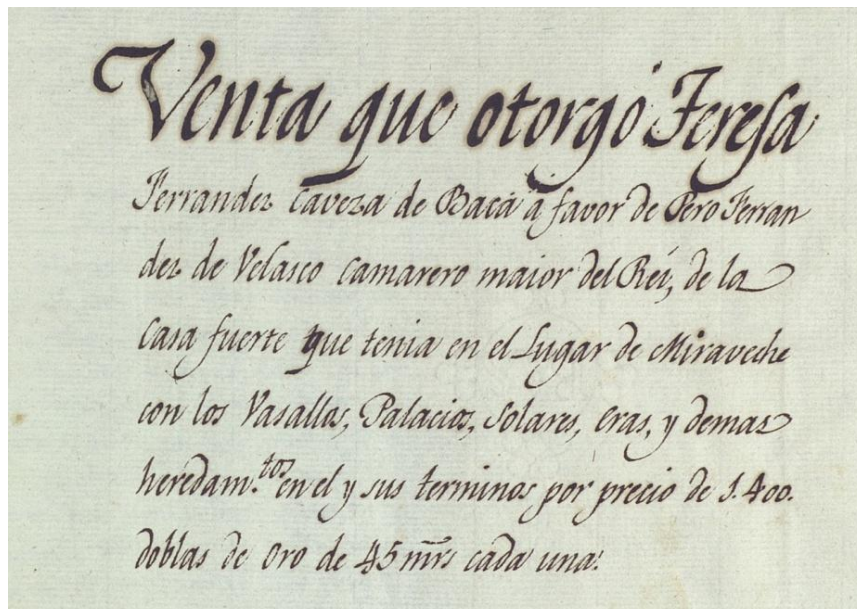 Venta que otorgó Teresa
Ferrandez Caveza de Baca á favor de Pero Ferran
dez de Velasco Camarero maior del Rei, de la
Casa fuerte que tenia en el Lugar de Miraveche
con los Vasallos, Palacios, Solares, eras, y demas
heredam.tos en el y sus terminos por precio de 1.400.
doblas de oro de 45 mrs cada una.